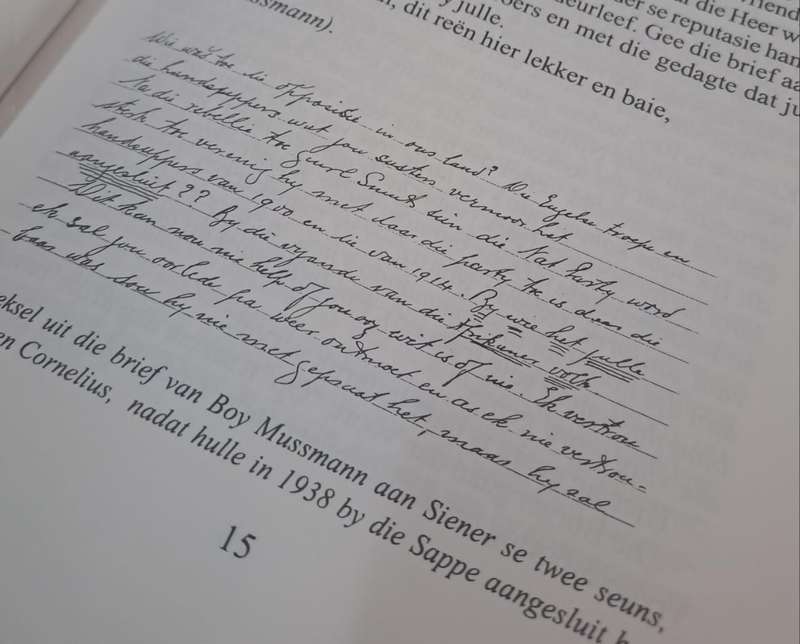 riend
al die Heer w
der se reputasie han
eurleef. Gee die brief aa
oers en met die gedagte dat ju
y julle.
, dit reën hier lekker en baie,
ssmann).
Wie was toe die opposisie in ons land? Die Engelse troep en
die handsuppers wat jou susters vermoor het
Na die rebellie toe Smuts sien die Nat Party word
sterk toe verenig hy met daardie party toe is dan die
handsuppers van 1900 en die van 1914. By wie het julle
aangesluit?? By die vyande van die Afrikaner volk
Dit kan nou nie help of jou oog wit is of nie. Ek vertrou
ek sal jou oorlede pa weer ontmoet en as ek nie vertrou-
baar was sou hy nie met gepraat het, maar hy sal
eksel uit die brief van Boy Mussmann aan Siener se twee seuns,
en Cornelius, nadat hulle in 1938 by die Sappe aangesluit h
15